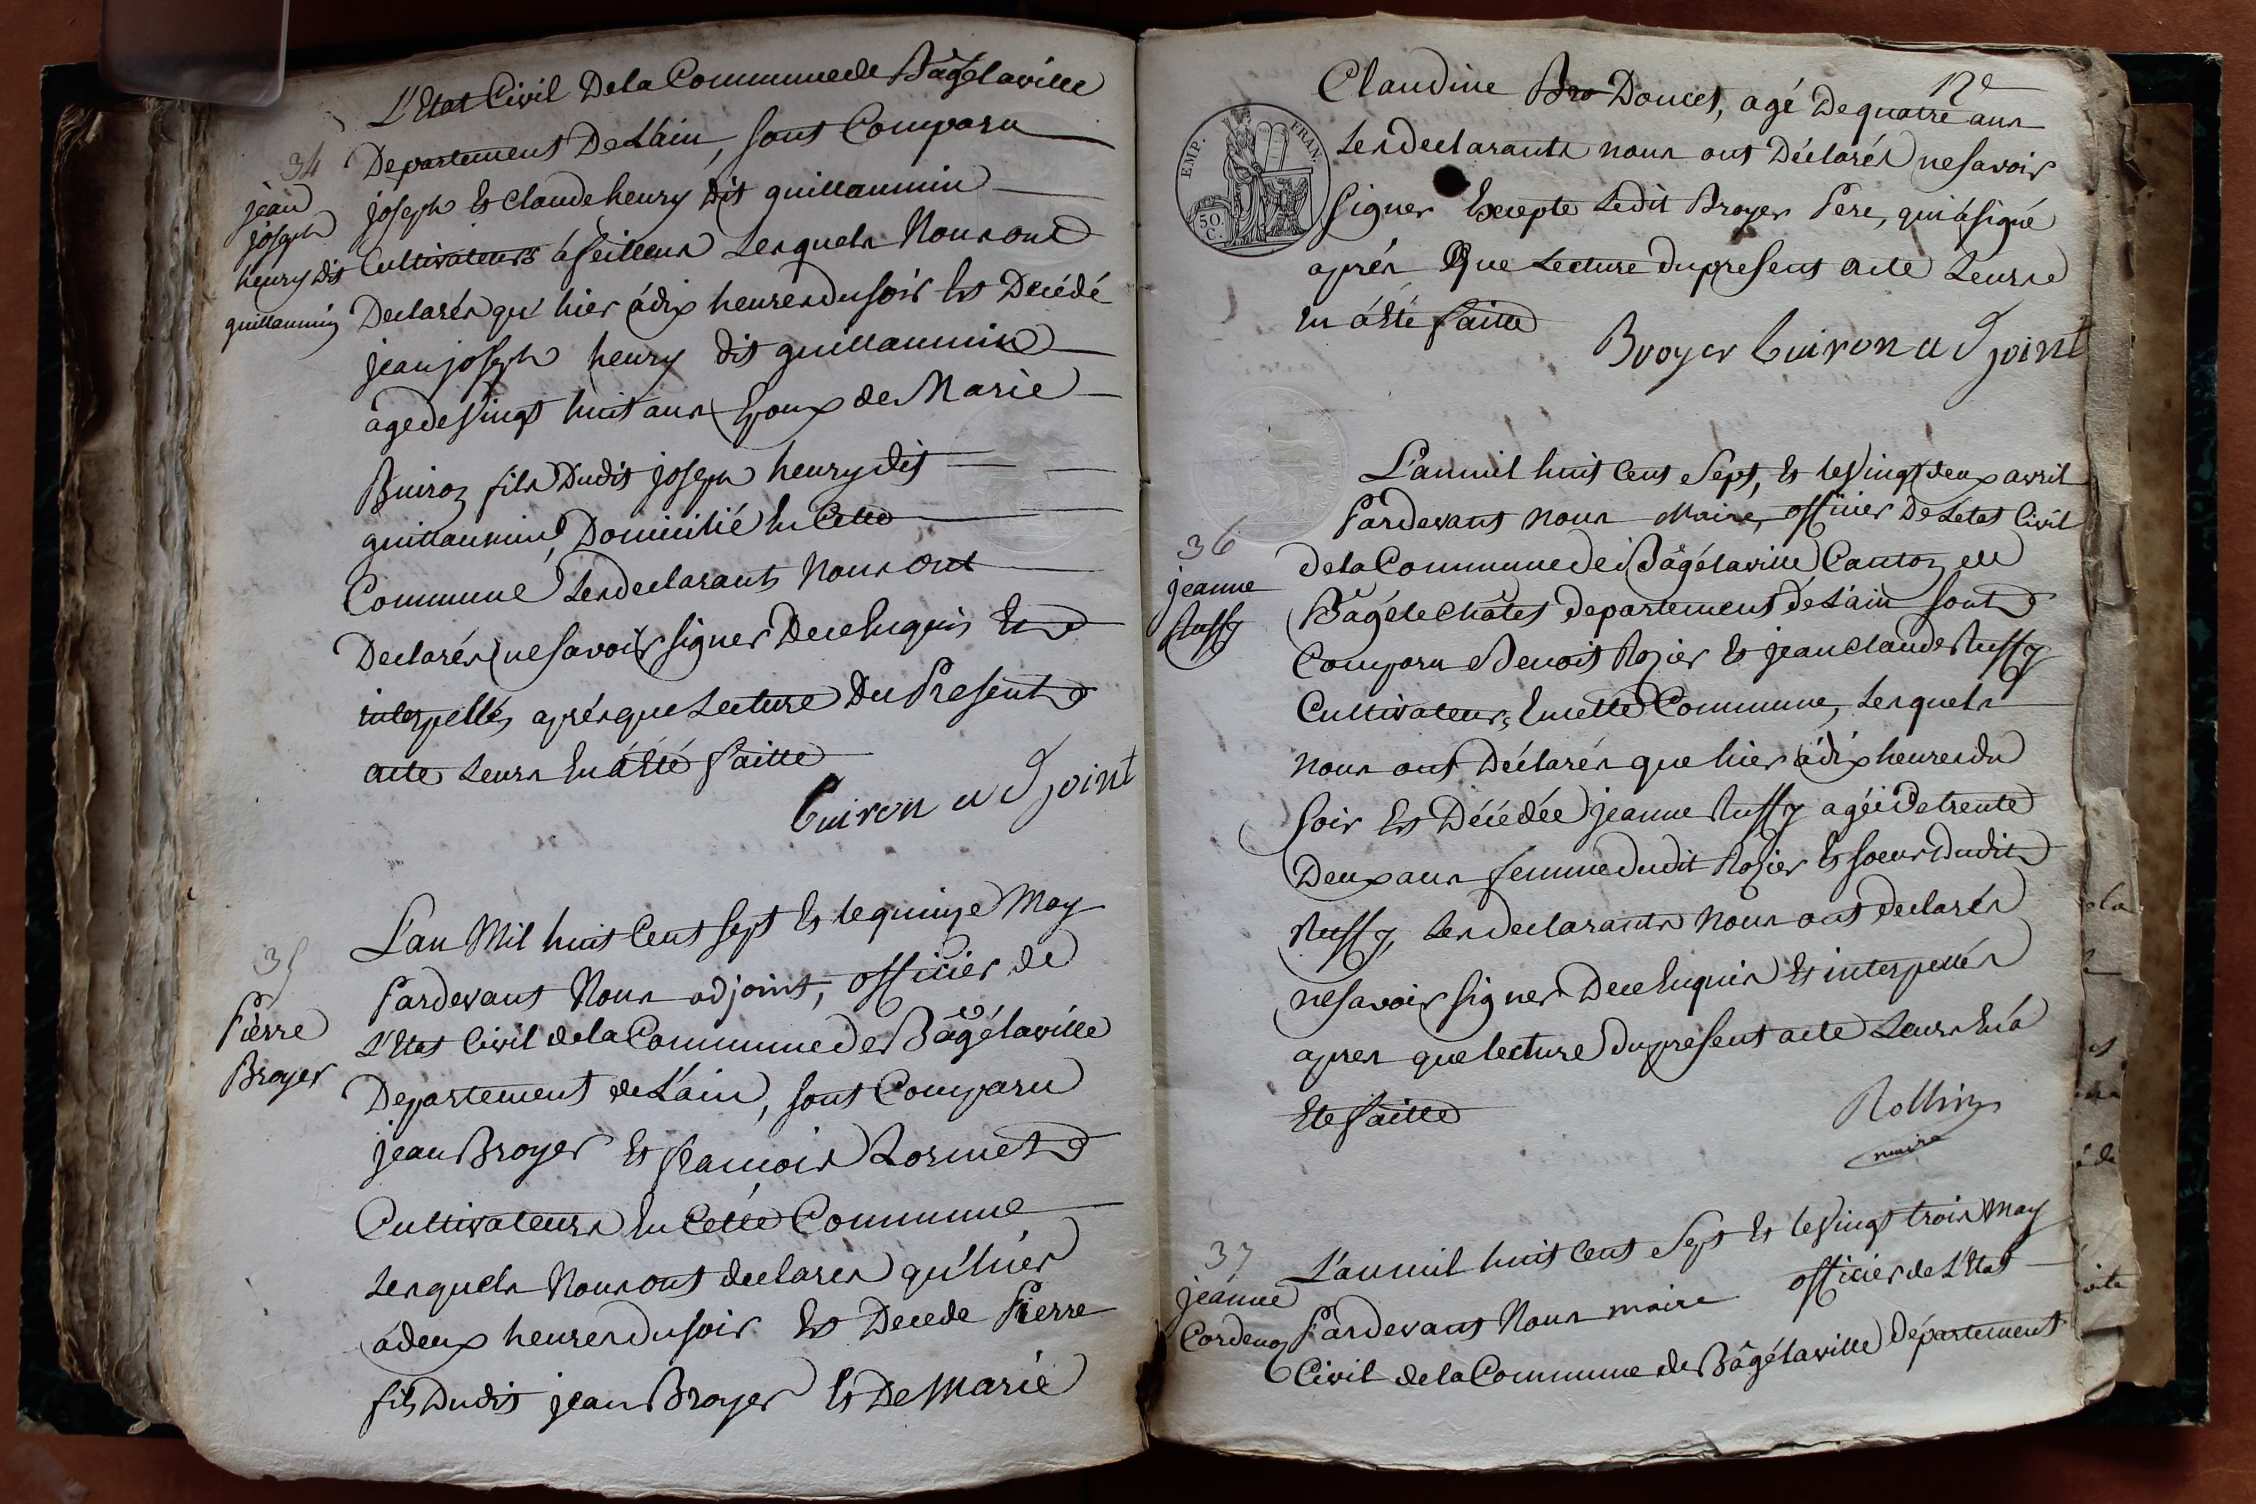 L'Etat Civil De la Commune de Bâgélaville
Departement De L'ain, sont Comparu
34
jean
joseph
henry dit
guillaumin
joseph et Claude henry dit guillaumin
Cultivateurs à feillens Lesquels Nous ont
Declarés qu'hier à dix heures du soir Est Décédé
jean joseph henry dit guillaumin
agé de Vingt huit ans Epoux de Marie
Buiron fils Dudit joseph henry dit
guillaumin, Domicilié En Cette
Commune Les declarants Nous ont
Declarés ne savoir signer De ce Enquis Et
interpellés, aprés que Lecture Du Present
acte Leurs En à Eté faitte
Buiron adjoint
35
Pierre
Broyer
L'an Mil huit Cent sept Et le quinze May
Pardevant Nous adjoint, officier de
L'Etat Civil de la Commune de Bâgélaville
Departement de L'ain, sont Comparu
jean Broyer Et francois Lormet
Cultivateurs En Cette Commune
Lesquels Nous ont declarés qu'hier
à deux heures du soir Est Decede Pierre
fils Dudit jean Broyer Et De Marie
12e
Claudine Bro Douces, agé De quatre ans
Les declarants nous ont Déclarés ne savoir
signer Excepte Ledit Broyer Pere, qui à signé
aprés Que Lecture du present acte Leurs
En à Eté faitte
Broyer Buiron adjoint
EMP. FRAN.
50 C.
L'an mil huit Cent Sept, Et le Vingt deux avril
Pardevant nous Maire, officier De Letat Civil
36
jeanne
Ruffy
de la Commune de Bâgélaville Canton de
Bâgé le Châtel departement de L'ain sont
Comparu Benoit Rozier Et jean Claude Ruffy
Cultivateurs En cette Commune, Lesquels
nous ont Déclarés que hier à dix heures du
soir Est Décédée jeanne Ruffy agée De trente
Deux ans femme dudit Rozier Et soeur Dudit
Ruffy, Les declarants Nous ont declarés
ne savoir signer De ce Enquis Et interpellés
apres que lecture du present acte Leurs En à
Ete faitte
Rollin
maire
37
jeanne
Cordenoz
L'an mil huit Cent Sept Et le Vingt trois May
Pardevant Nous maire officier de L'Etat
Civil de la Commune de Bâgélaville Département